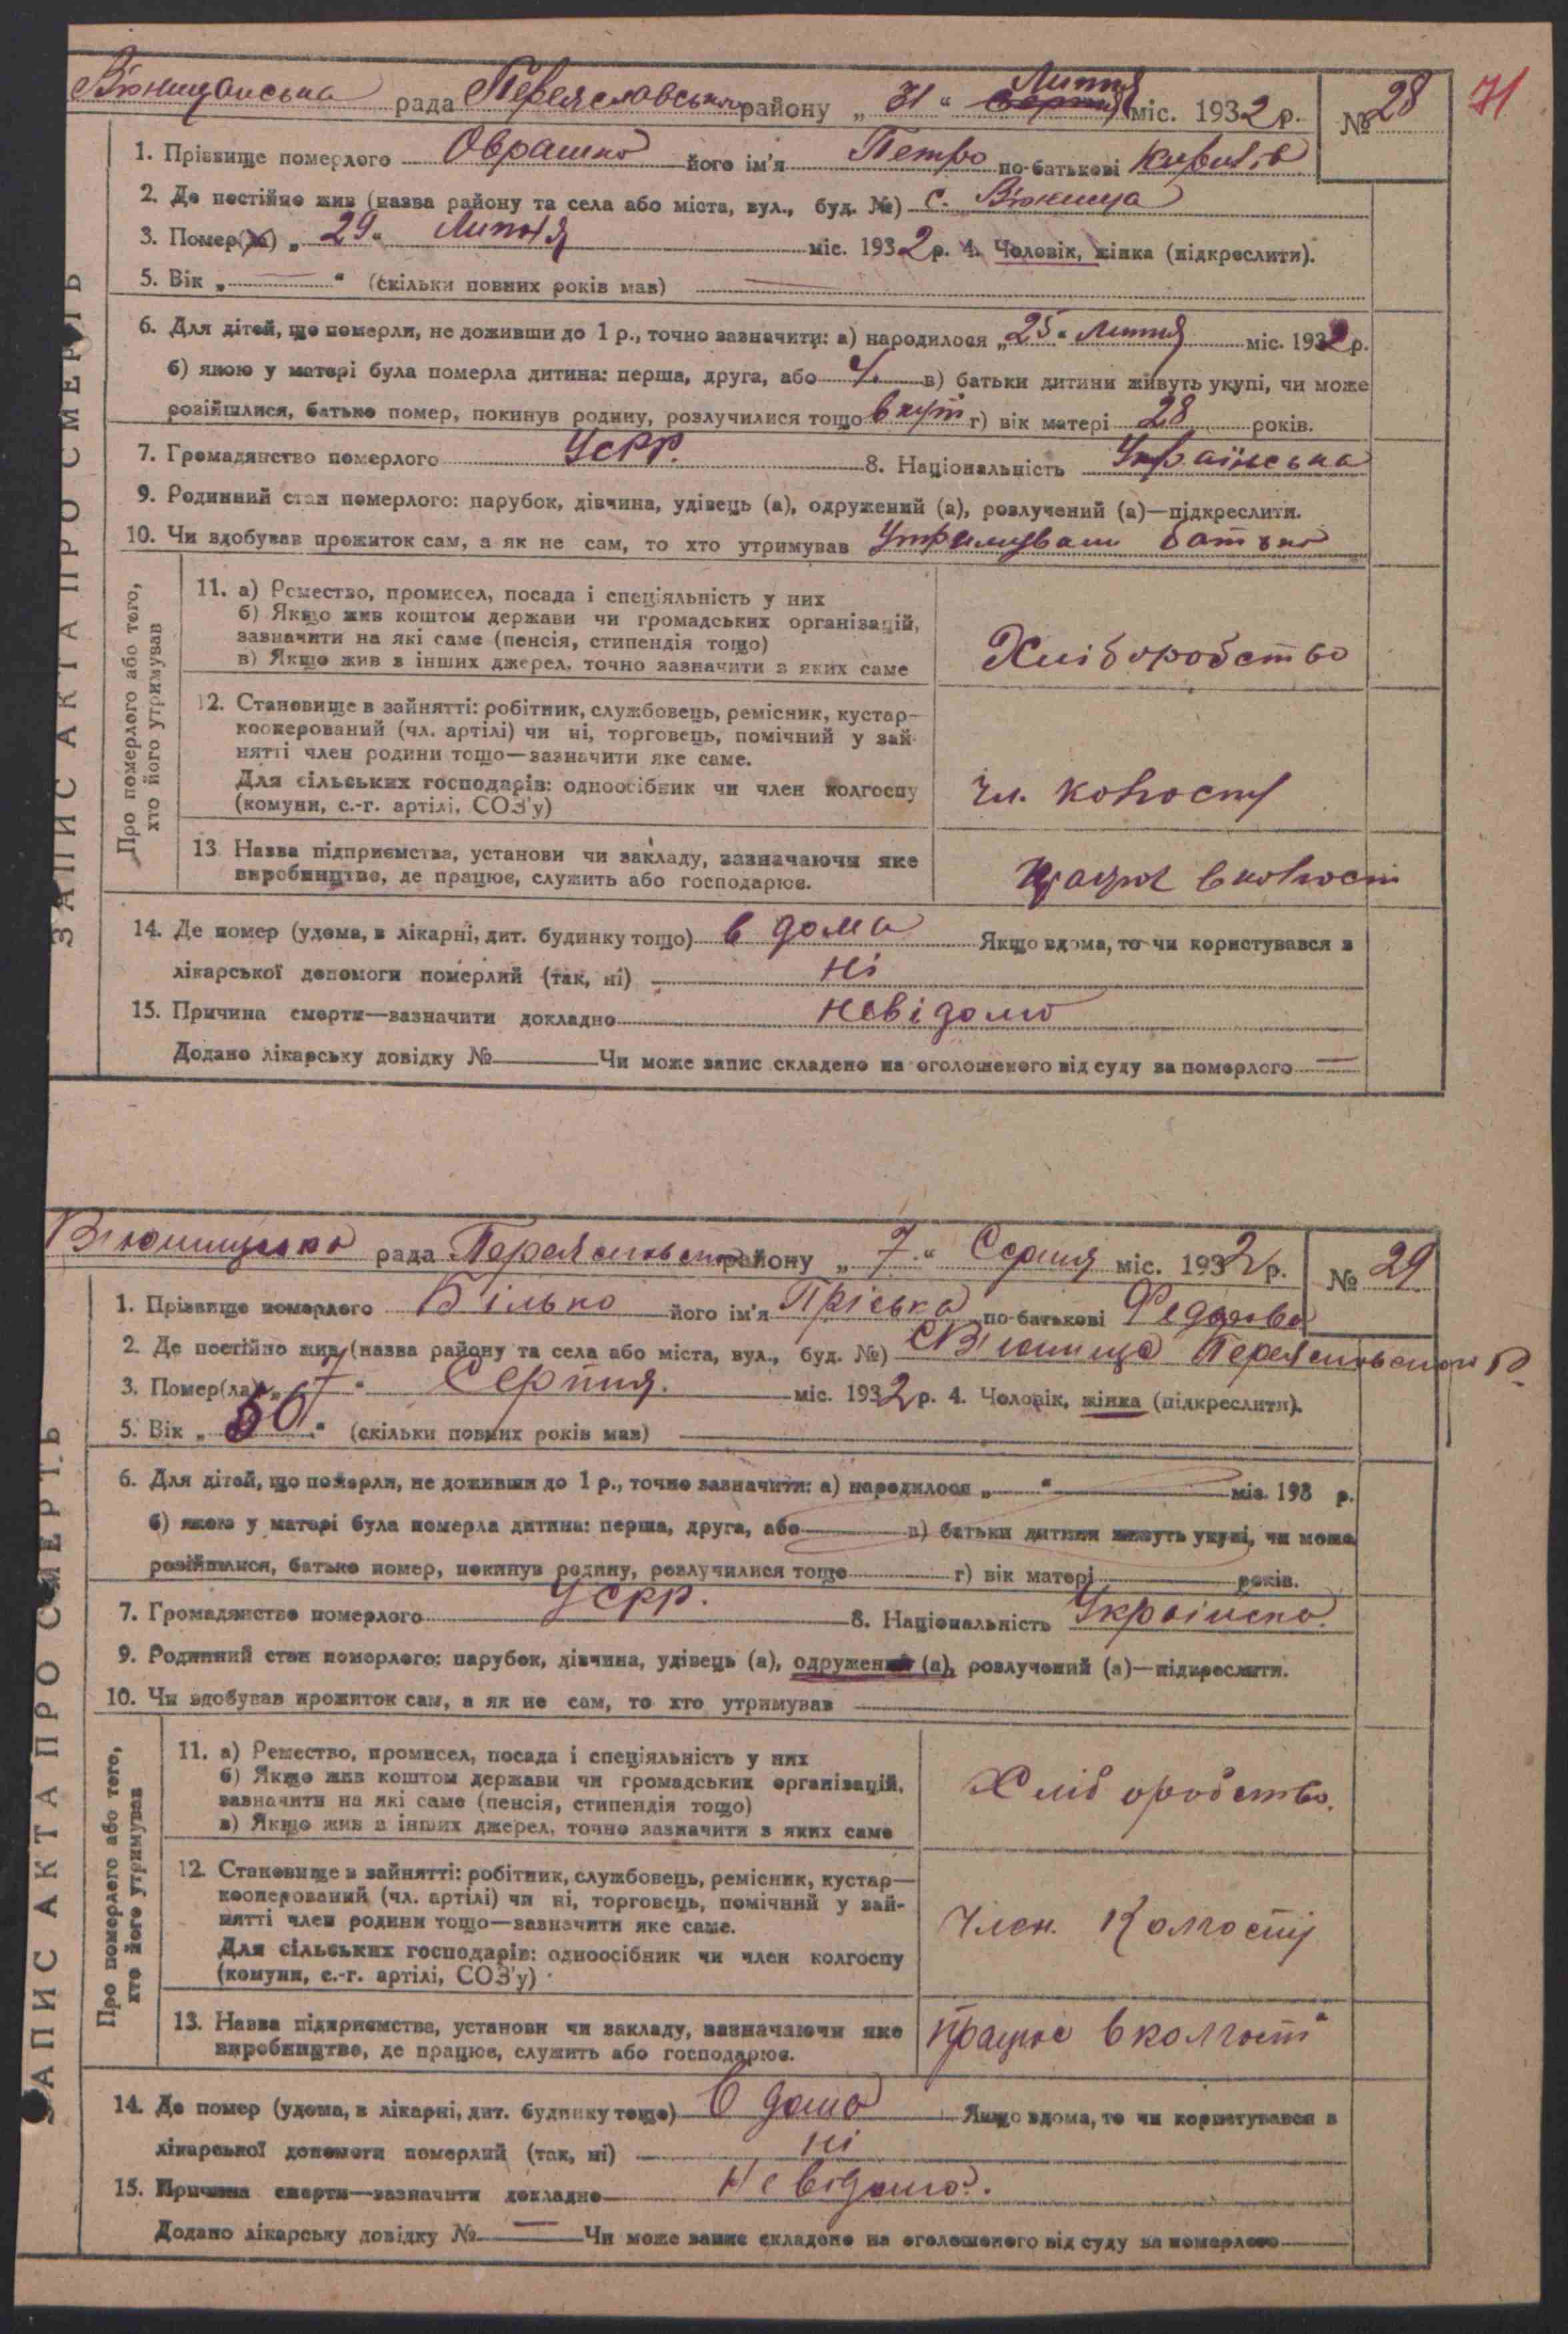 В'юнищанська рада Переяславськ району „ 31 “ Серпня Липня міс. 1932 р. № 28 71
1. Прізвище померлого Оврашко його ім'я Петро по-батькові Кирилів
2. Де постійно жив (назва району та села або міста, вул., буд. №) с. В'юнища
3. Помер(ла) „ 29 “ Липня міс. 1932 р. 4. Чоловік, жінка (підкреслити).
5. Вік „ — “ (скільки повних років мав) —
6. Для дітей, що померли, не доживши до 1 р., точно зазначити: а) народилося „ 25 “ Липня міс. 1932 р.
б) якою у матері була померла дитина: перша, друга, або 4. в) батьки дитини живуть укупі, чи може
розійшлися, батько помер, покинув родину, розлучилися тощо вкупі г) вік матері 28 років.
7. Громадянство померлого УСРР. 8. Національність Українська
9. Родинний стан померлого: парубок, дівчина, удівець (а), одружений (а), розлучений (а)—підкреслити.
10. Чи здобував прожиток сам, а як не сам, то хто утримував Утримували батько
ЗАПИС АКТА ПРО СМЕРТЬ
Про померлого або того, хто його утримував
11. а) Ремество, промисел, посада і спеціяльність у них
б) Якщо жив коштом держави чи громадських організацій,
зазначити на які саме (пенсія, стипендія тощо)
в) Якщо жив з інших джерел, точно зазначити з яких саме
Хліборобство
12. Становище в зайнятті: робітник, службовець, ремісник, кустар—
кооперований (чл. артілі) чи ні, торговець, помічний у зай-
нятті член родини тощо—зазначити яке саме.
Для сільських господарів: одноосібник чи член колгоспу
(комуни, с.-г. артілі, СОЗ'у)
чл. колгоспу
13. Назва підприємства, установи чи закладу, зазначаючи яке
виробництво, де працює, служить або господарює.
працює в колгоспі
14. Де помер (удома, в лікарні, дит. будинку тощо) в дома Якщо вдома, то чи користувався з
лікарської допомоги померлий (так, ні) ні
15. Причина смерти—зазначити докладно невідомо
Додано лікарську довідку № — Чи може запис складено на оголошеного від суду за померлого —
В'юнищська рада Переяславськ району „ 7 “ Серпня міс. 1932 р. № 29
1. Прізвище померлого Білько його ім'я Пріська по-батькові Федорова
2. Де постійно жив (назва району та села або міста, вул., буд. №) с. В'юнища Переяславського Р.
3. Помер(ла) „ 7 “ Серпня. міс. 1932 р. 4. Чоловік, жінка (підкреслити).
5. Вік „ 50 “ (скільки повних років мав)
6. Для дітей, що померли, не доживши до 1 р., точно зазначити: а) народилося „ “ міс. 193 р.
б) якою у матері була померла дитина: перша, друга, або в) батьки дитини живуть укупі, чи може
розійшлися, батько помер, покинув родину, розлучилися тощо г) вік матері років.
7. Громадянство померлого УСРР. 8. Національність Українска
9. Родинний стан померлого: парубок, дівчина, удівець (а), одружений (а), розлучений (а)—підкреслити.
10. Чи здобував прожиток сам, а як не сам, то хто утримував
ЗАПИС АКТА ПРО СМЕРТЬ
Про померлого або того, хто його утримував
11. а) Ремество, промисел, посада і спеціяльність у них
б) Якщо жив коштом держави чи громадських організацій,
зазначити на які саме (пенсія, стипендія тощо)
в) Якщо жив з інших джерел, точно зазначити з яких саме
Хліборобство.
12. Становище в зайнятті: робітник, службовець, ремісник, кустар—
кооперований (чл. артілі) чи ні, торговець, помічний у зай-
нятті член родини тощо—зазначити яке саме.
Для сільських господарів: одноосібник чи член колгоспу
(комуни, с.-г. артілі, СОЗ'у)
Член. Колгоспу
13. Назва підприємства, установи чи закладу, зазначаючи яке
виробництво, де працює, служить або господарює.
працює в колгоспі
14. Де помер (удома, в лікарні, дит. будинку тощо) в дома Якщо вдома, то чи користувався з
лікарської допомоги померлий (так, ні) ні
15. Причина смерти—зазначити докладно Невідомо.
Додано лікарську довідку № — Чи може запис складено на оголошеного від суду за померлого